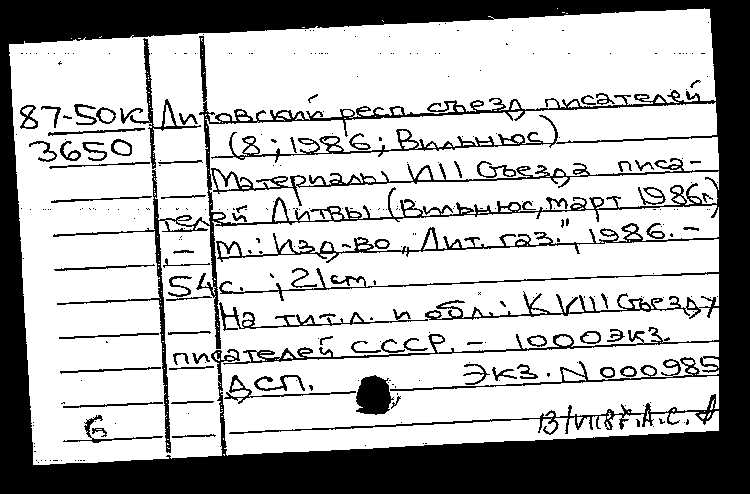 87-50к Литовский респ. съезд писателей
3650 (8; 1986; Вильнюс)
Материалы VIII Съезда писа-
телей Литвы (Вильнюс, март 1986г.)
. - М.: Изд-во „Лит. газ.", 1986. -
54 с. ; 21 см.
На тит. л. и обл.: К VIII Съезду
писателей СССР. - 1000 экз.
ДСП. Экз. N 000985
6
13/VII 87. А.С.